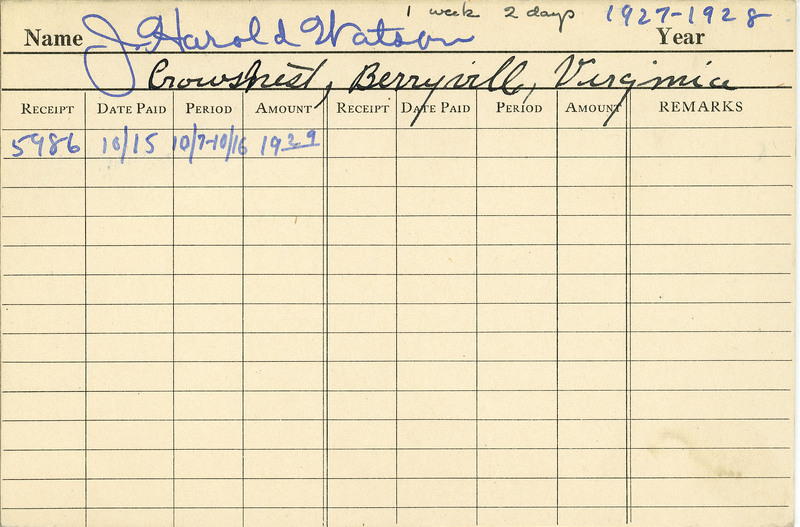 1 week 2 days 1927-1928
Name J. Harold Watson Year
Crowsnest, Berryville, Virginia
RECEIPT DATE PAID PERIOD AMOUNT RECEIPT DATE PAID PERIOD AMOUNT REMARKS
5986 10/15 10/7-10/16 19 29